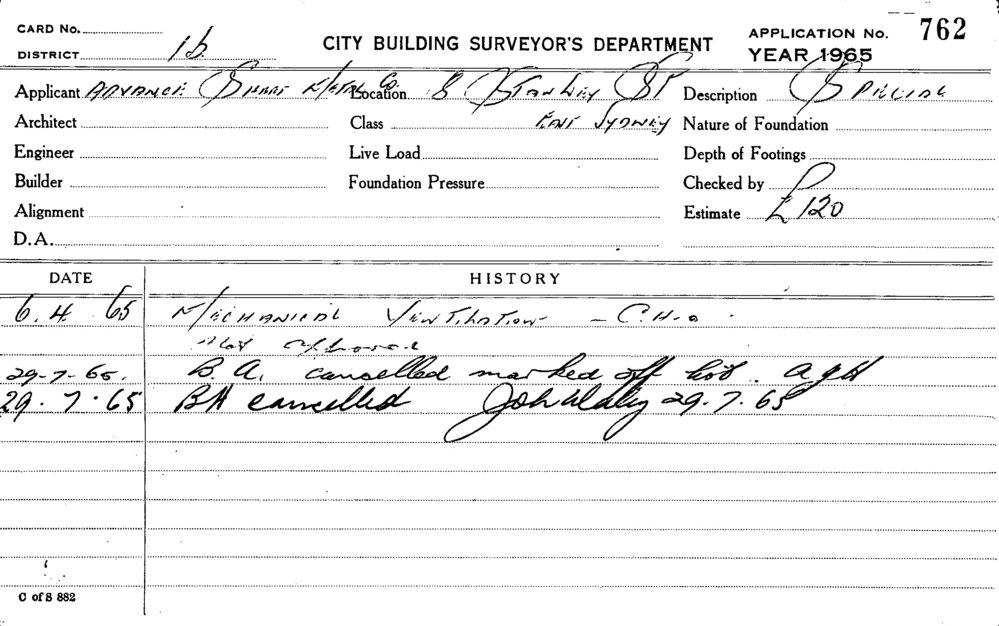 CARD No.
DISTRICT 1b
CITY BUILDING SURVEYOR'S DEPARTMENT
APPLICATION No. 762
YEAR 1965
Applicant ADVANCE SHEET METAL Co. Location 8 STANLEY ST Description SPECIAL
Architect Class EAST SYDNEY Nature of Foundation
Engineer Live Load Depth of Footings
Builder Foundation Pressure Checked by
Alignment Estimate £120
D.A.
DATE HISTORY
6. 4. 65 MECHANICAL VENTILATION - C.H.O.
Not approved
29-7-65. B.A. cancelled marked off list. AGH
29.7.65 BA cancelled 29.7.65
C of S 882